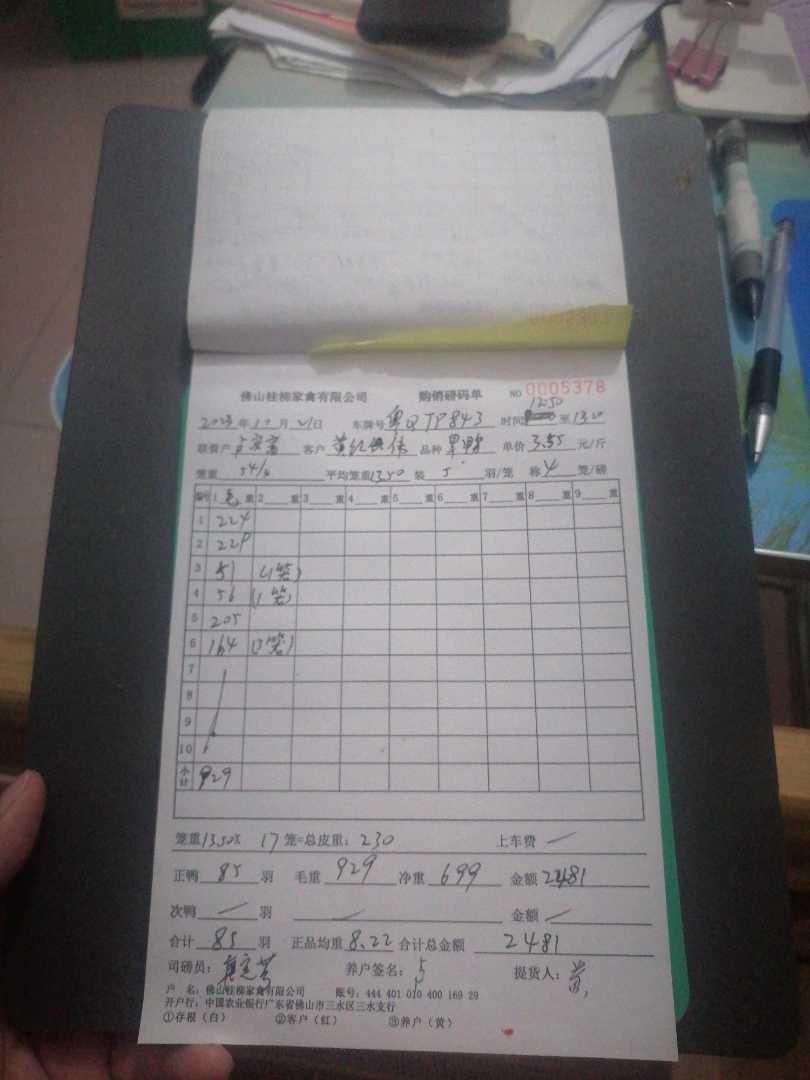 佛山桂柳家禽有限公司 购销磅码单 NO 0005378
12:50
2023年10月21日 车牌号粤QTP843 时间 至1320
联营户 客户黄 伟 品种 单价3.55元/斤
笼重54/4 平均笼重13.50 装5羽/笼 称4笼/磅
编号 1毛重 2重 3重 4重 5重 6重 7重 8重 9重
1 224
2 229
3 51 (1笼)
4 56 (1笼)
5 205
6 164 (3笼)
7
8
9
10
小计 929
笼重13.50× 17笼=总皮重:230 上车费
正鸭85羽 毛重929 净重699 金额2481
次鸭 羽 金额
合计85羽 正品均重8.22 合计总金额2481
司磅员: 养户签名: 提货人:黄
户 名:佛山桂柳家禽有限公司 账号:444 401 010 400 169 29
开户行:中国农业银行广东省佛山市三水区三水支行
①存根(白) ②客户(红) ③养户(黄)